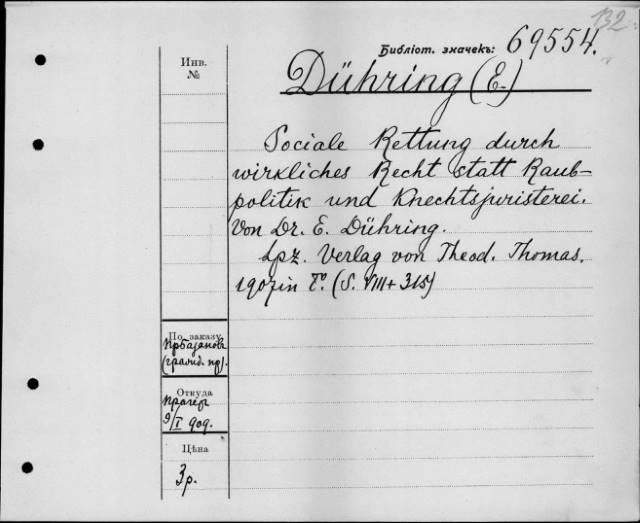 132
Инв.
№
Библіот. значекъ: 69554.
Dühring (E.)
Sociale Rettung durch
wirkliches Recht statt Raub-
politik und Knechtsjuristerei.
Von Dr. E. Dühring.
Lpz. Verlag von Theod. Thomas.
1907 in 8°. (S. VIII + 315)
По заказу
Откуда
9/I 909.
Цѣна
3 р.